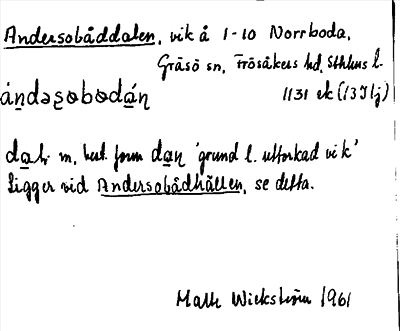 Andersobåddalen, vik å 1-10 Norrboda,
Gräsö sn, Frösåkers hd, Sthlms l.
ándəs̱obodán 1131 ek (13I lj)
dal, m, best. form dan 'grund l. uttorkad vik'
Ligger vid Andersobådhällen, se detta.
Math Wickström 1961